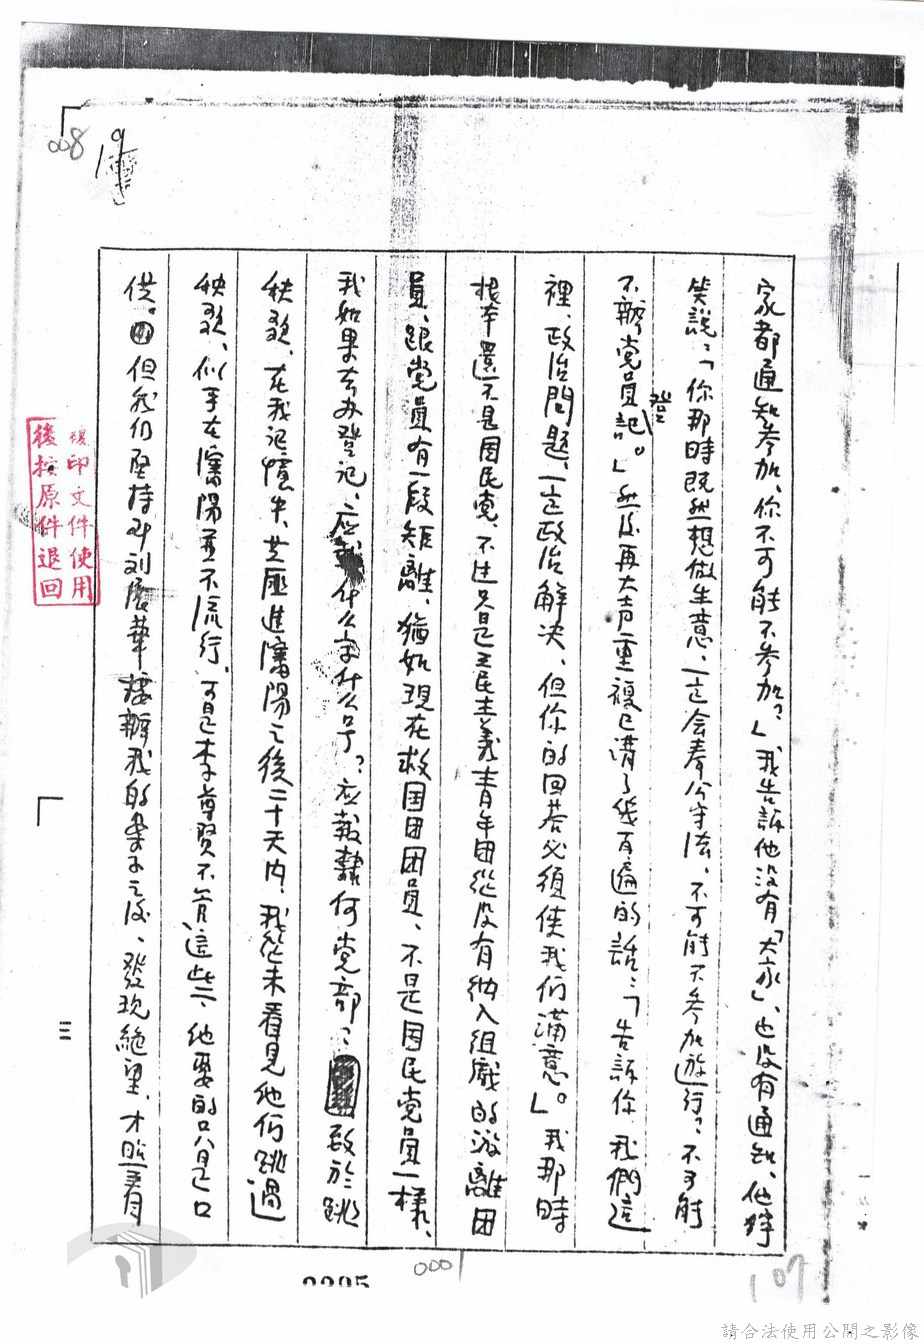 008
19
家都通知参加、你不可能不参加？」我告訴他没有「大家」、也没有通知、他獰
笑說：「你那時既然想做生意、一定会奉公守法、不可能不参加遊行？不可能
不辦党員登記。」然后再大声重複已講了幾百遍的話：「告訴你、我們這
裡、政治問題、一定政治解决、但你的回答必须使我们满意」。我那時
根本還不是国民党、不过只是三民主義青年团從没有納入組織的游離团
員、跟党員有一段矩離、猶如現在救国团团員、不是国民党員一樣、
我如果去办登记、应報什么字什么号？应報隸何党部？致於跳
秧歌、在我记憶中、共匪進瀋陽之後二十天内、我從未看見他们跳過
秧歌、似乎在瀋陽並不流行、可是李尊賢不管這些、他要的只是口
供。但我仍坚持、到刘展華接辦我的案子之后、發現絶望、才照着
複印文件使用
後按原件退回
三
0001
107
請合法使用公開之影像